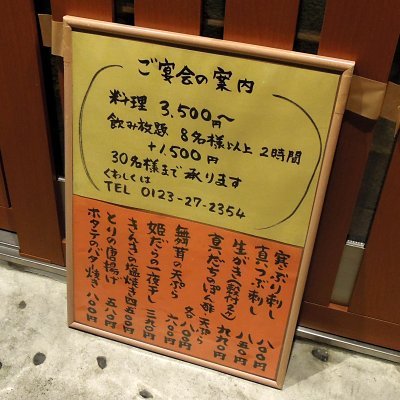 ご宴会の案内
料理 3,500円〜
飲み放題 8名様以上 2時間
+1,500円
30名様まで承ります
くわしくは
TEL 0123-27-2354
寒ぶり刺し 八〇〇円
真つぶ刺し 八五〇円
生がき(殻付き)
真だちのぽん酢・天ぷら 各八〇〇円
舞茸の天ぷら 六〇〇円
姫だらの一夜干し 三九〇円
きんきの塩焼き 四五〇〇円
とりの唐揚げ 五八〇円
ホタテのバター焼き 八〇〇円